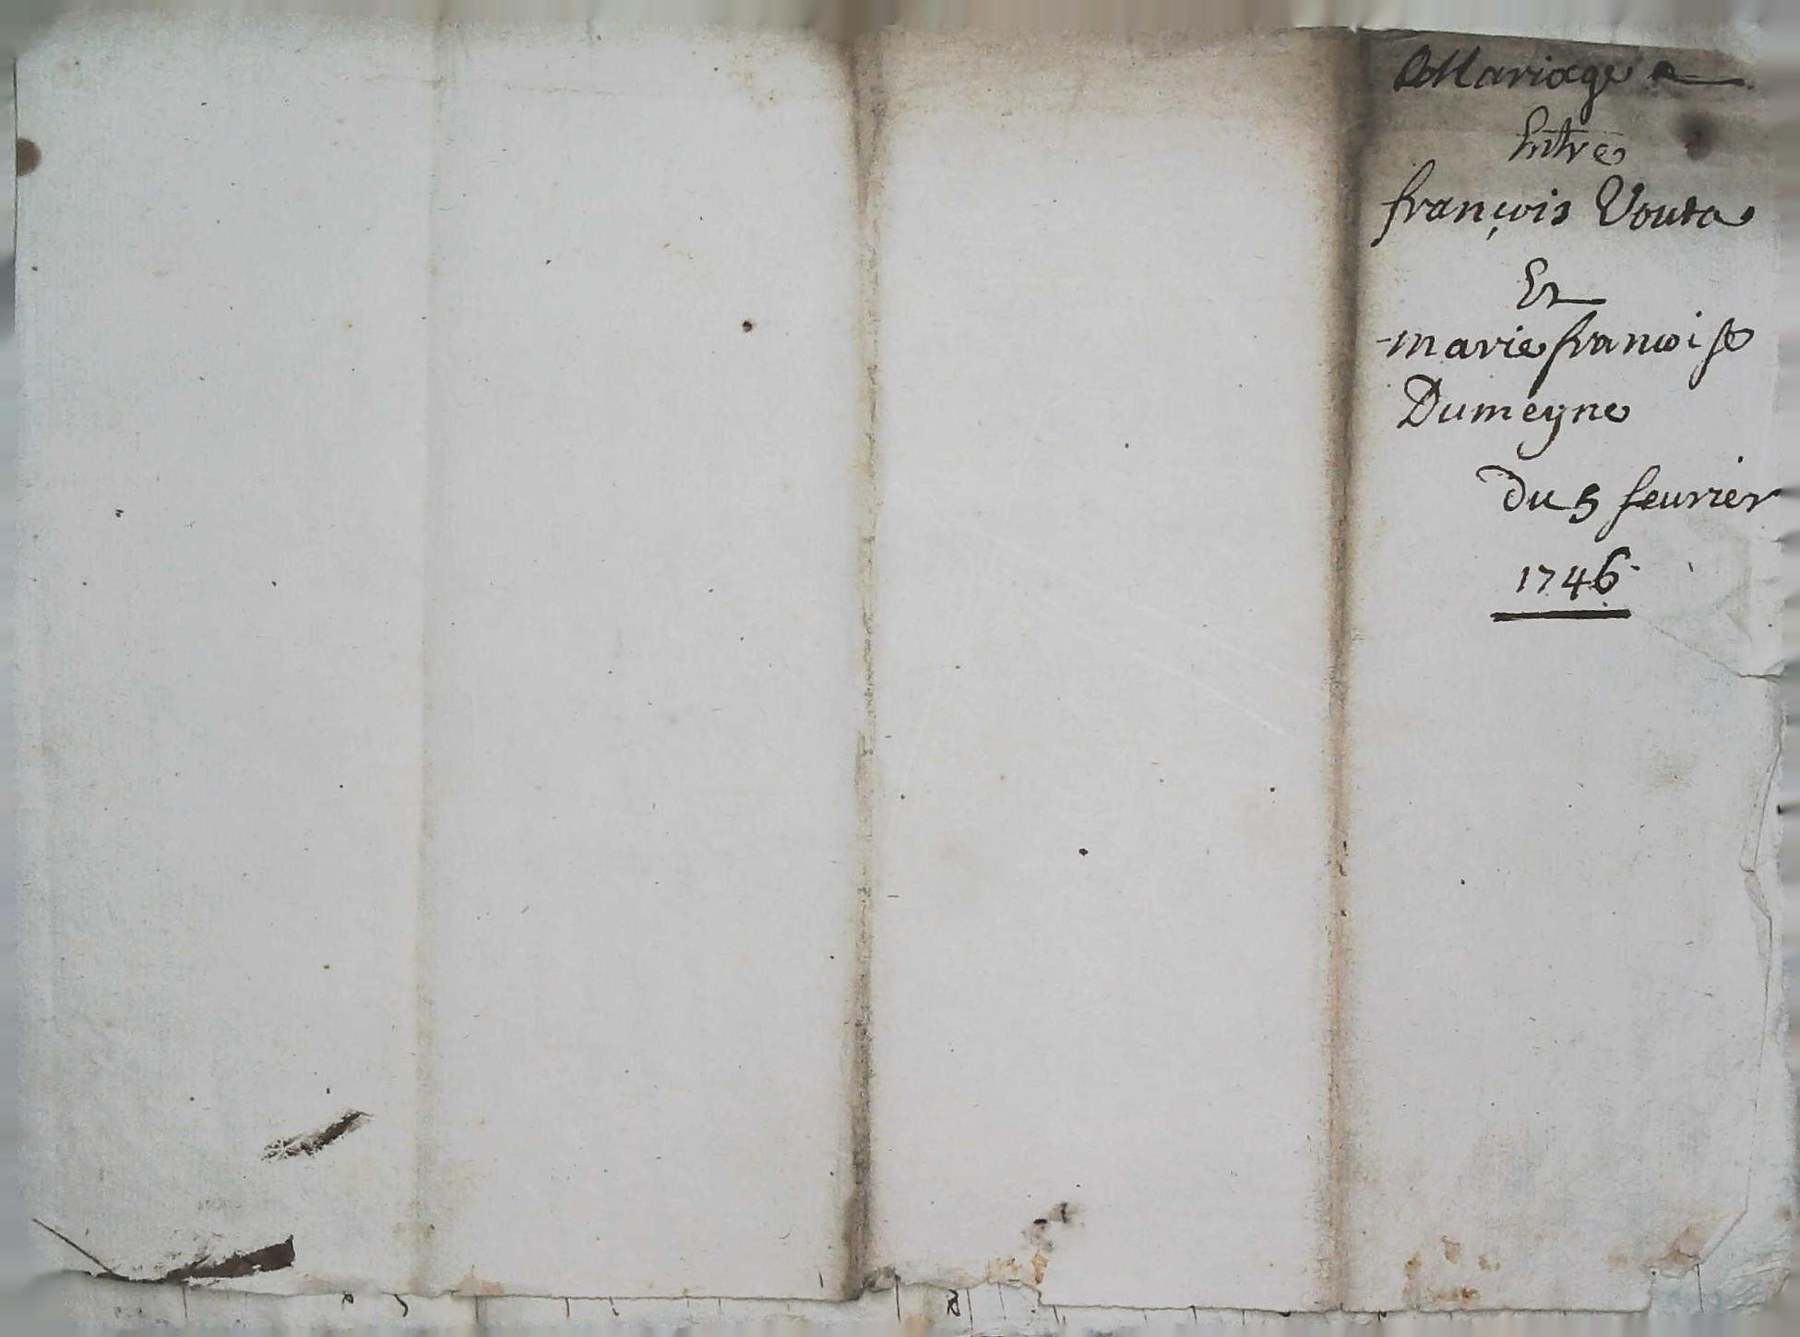 Mariage
Entre
françois Vouta
Et
marie francoise
Dumeyne
du 5 feurier
1746